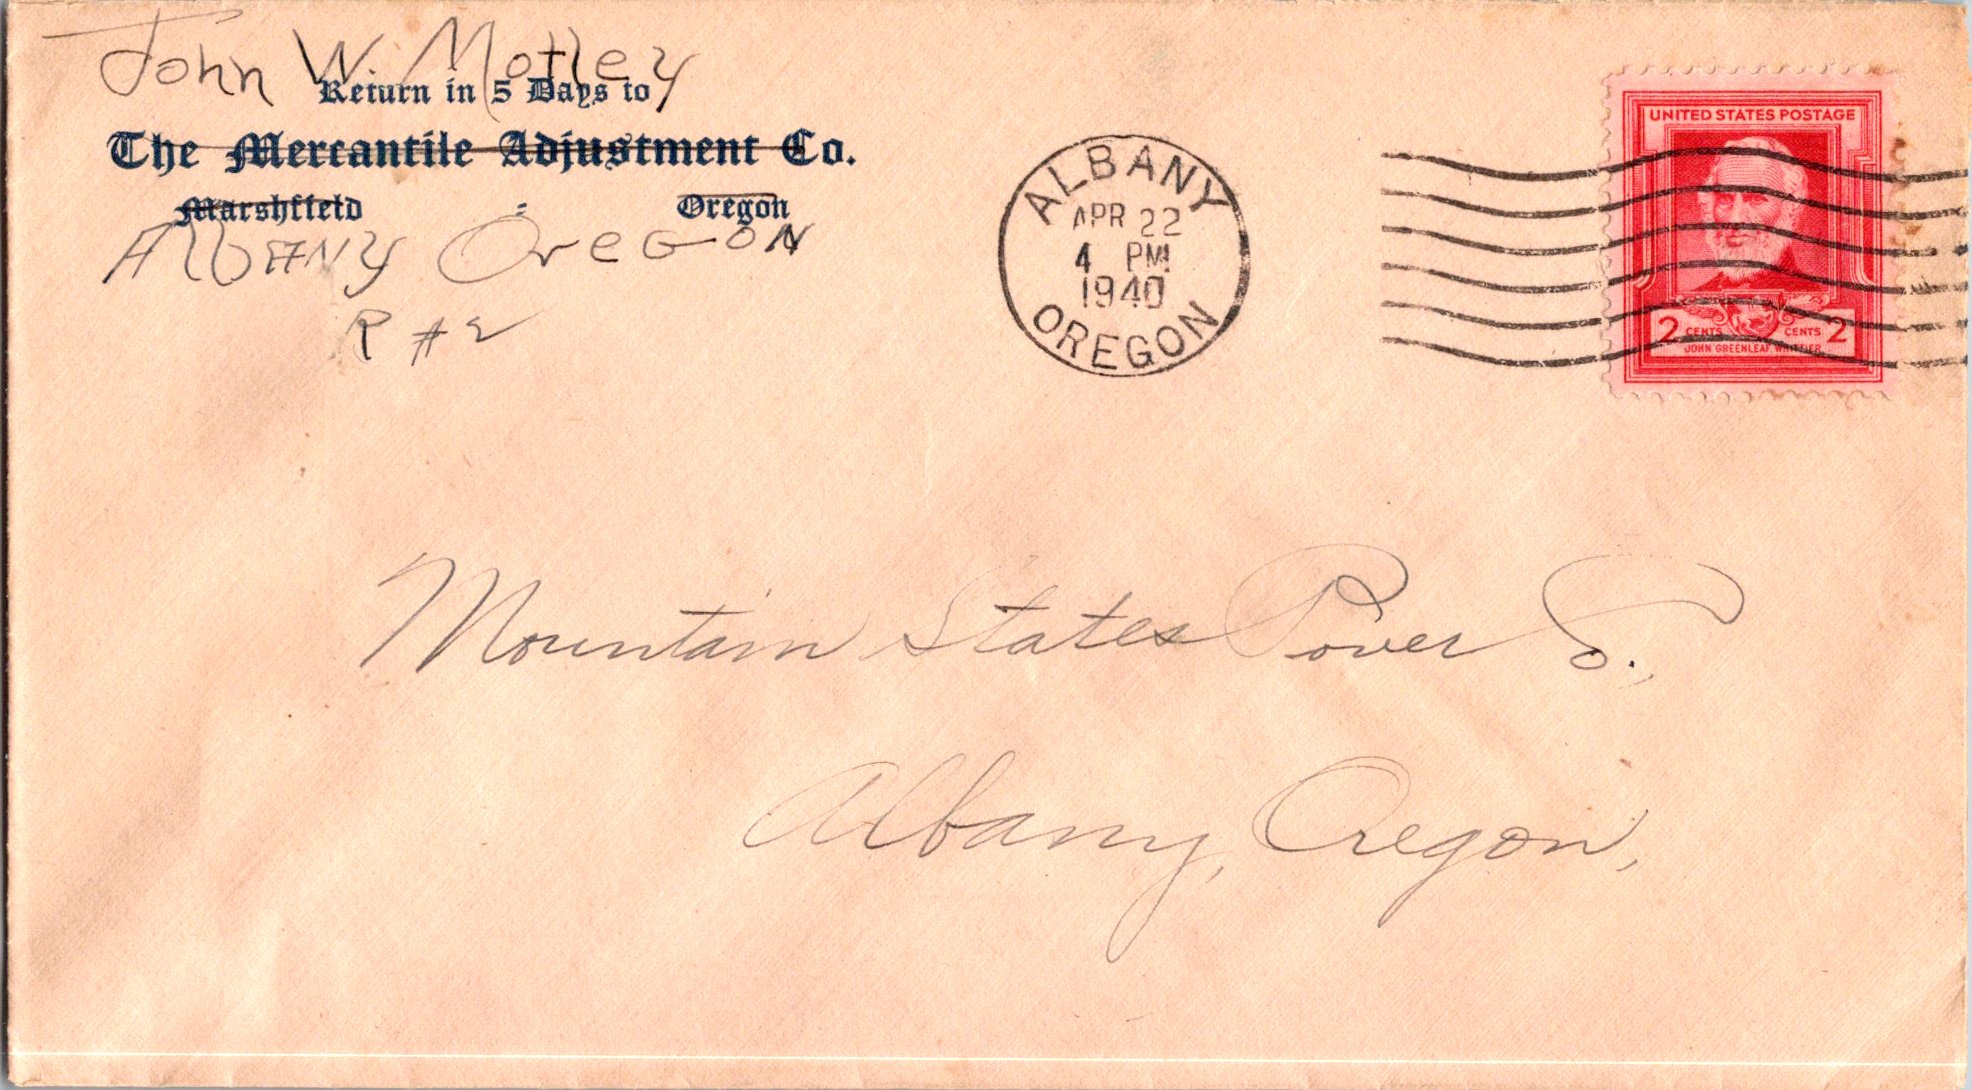 John W. Motley
Return in 5 Days to
The Mercantile Adjustment Co.
Marshfield : Oregon
Albany Oregon
R #2
ALBANY
APR 22
4 PM
1940
OREGON
UNITED STATES POSTAGE
2 CENTS CENTS 2
JOHN GREENLEAF WHITTIER
Mountain States Power Co.,
Albany, Oregon,